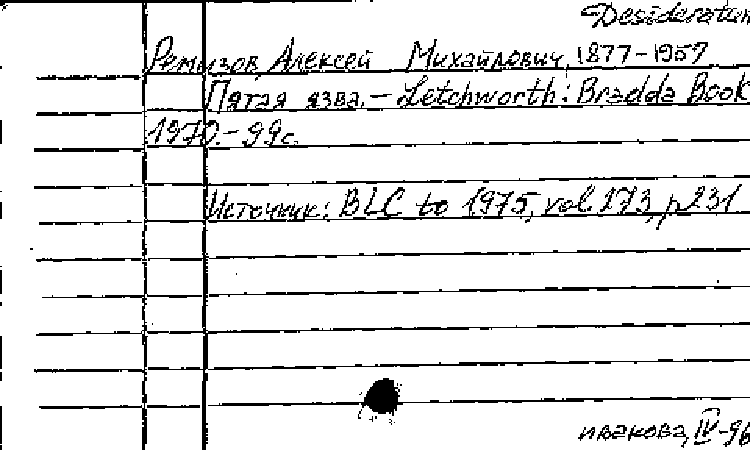 Desideratum
Ремизов, Алексей Михайлович, 1877-1957
Пятая язва. - Letchworth: Bradda Book
1970. - 99 с.
Источник: BLC to 1975, vol 273, p 231
ивакова, IV-96